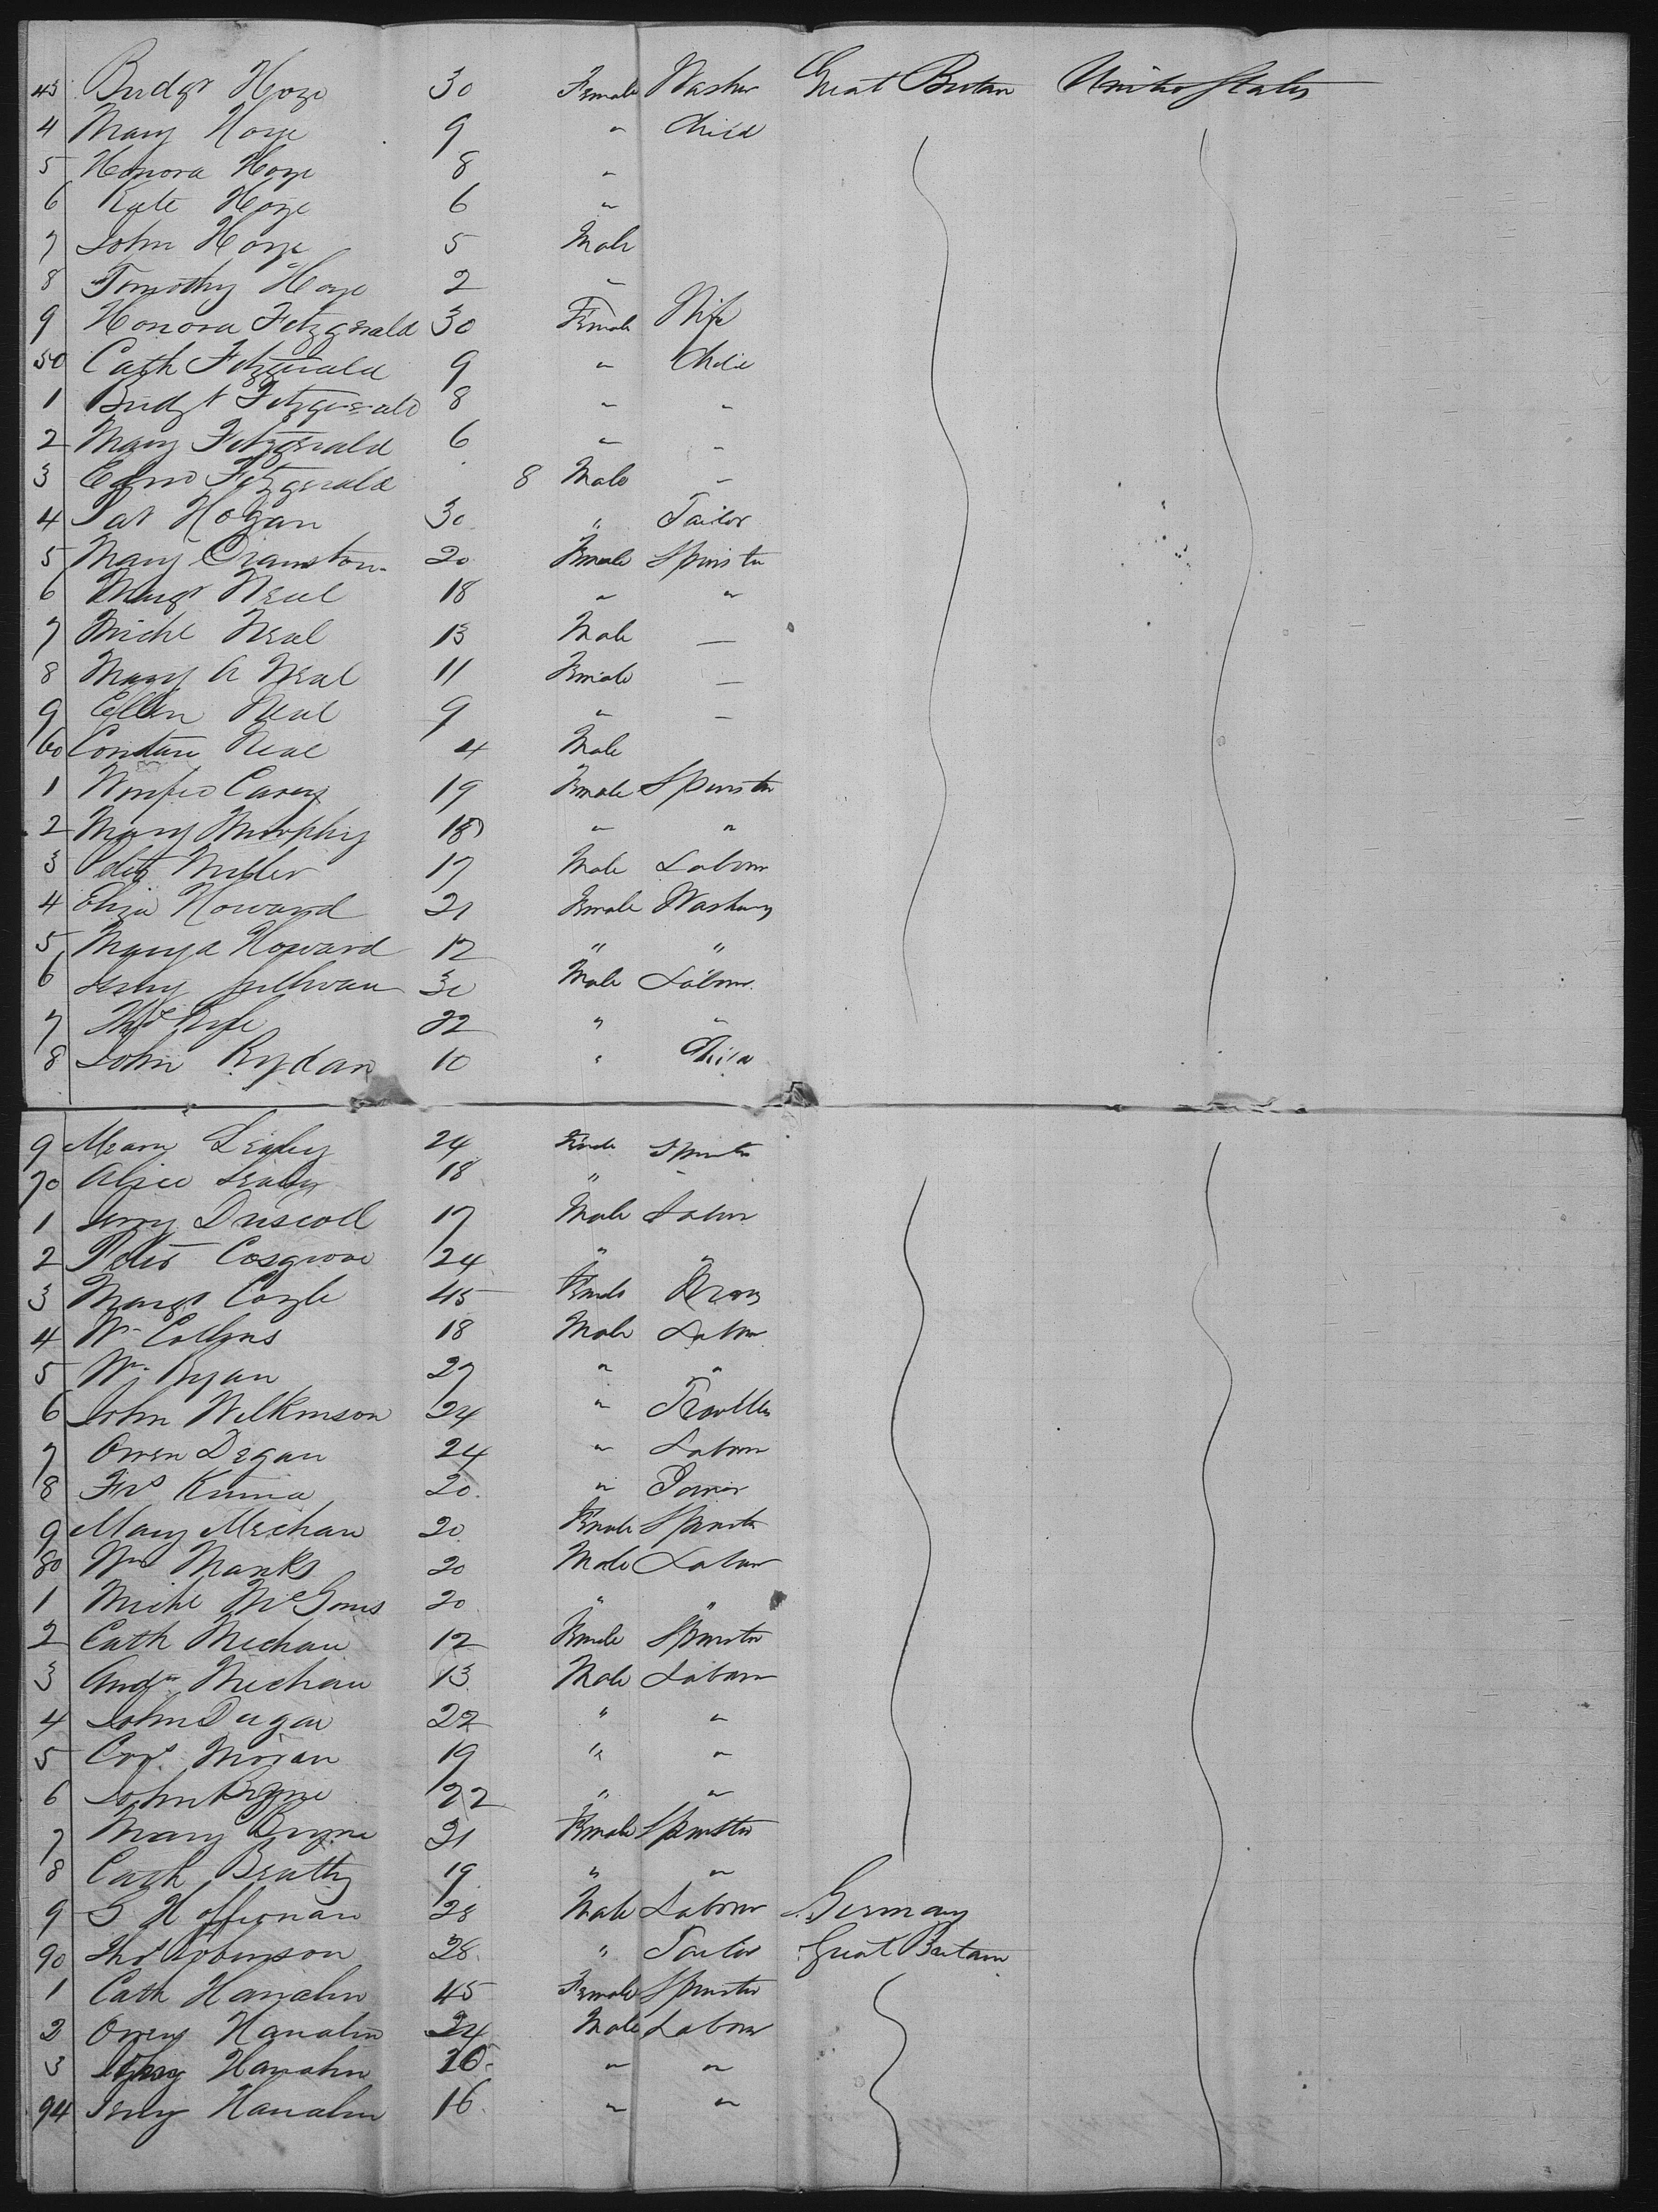 43 Bridgt Hoye 30 Female Washer Great Britan United States
4 Mary Hoye 9 " Child
5 Honora Hoye 8 "
6 Kate Hoye 6 "
7 John Hoye 5 Male
8 Timothy Hoye 2 "
9 Honora Fitzgerald 30 Female Wife
50 Cath Fitzgerald 9 " Child
1 Bridgt Fitzgerald 8 " "
2 Mary Fitzgerald 6 " "
3 Edmd Fitzgerald 8 Male "
4 Pat Hogan 30 " Tailor
5 Mary Cranston 20 Female Spinster
6 Margt Neal 18 " "
7 Michl Neal 13 Male —
8 Mary A Neal 11 Female —
9 Ellen Neal 9 " —
60 Neal 4 Male
1 Carey 19 Female Spinster
2 Mary Murphy 18 " "
3 Miller 17 Male Labour
4 Eliza Howard 21 Female
5 Mary A Howard 12 " "
6 Jerry Sullivan 30 Male Labour
7 Thos 22 " "
8 John Rydan 10 " Child
9 Mary Leahy 24 Female Spinster
70 Alice Leahy 18 " "
1 Jerry Driscoll 17 Male Labour
2 Peter Cosgrove 24 " "
3 Margt Coyle 45 Female
4 Wm Collins 18 Male Labour
5 Wm Ryan 27 " "
6 John Wilkinson 24 "
7 Owen Degan 24 " Labour
8 Frs 20 "
9 Mary Mechan 20 Female Spinster
80 Wm Manks 20 Male Labour
1 Michl 20 " "
2 Cath Mechan 12 Female Spinster
3 Andw Mechan 13 Male Labour
4 John Dugan 22 " "
5 Moran 19 " "
6 John Byrne 22 " "
7 Mary Byrne 21 Female Spinster
8 Cath Beatty 19 " "
9 G Heffernan 28 Male Labour Germany
90 Thos Robinson 28 " Tailor Great Britain
1 Cath Hanahn 45 Female Spinster
2 Owen Hanahn 24 Male Labour
3 Hanahn " "
94 Jerry Hanahn 16 " "